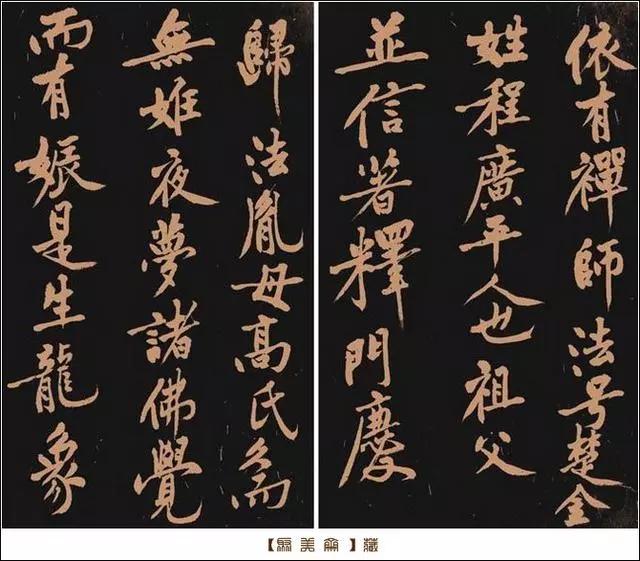 依有禪師法号楚金
姓程廣平人也祖父
並信著釋門慶
歸法胤母高氏久而
無姙夜夢諸佛覺
而有娠是生龍象
美 藏